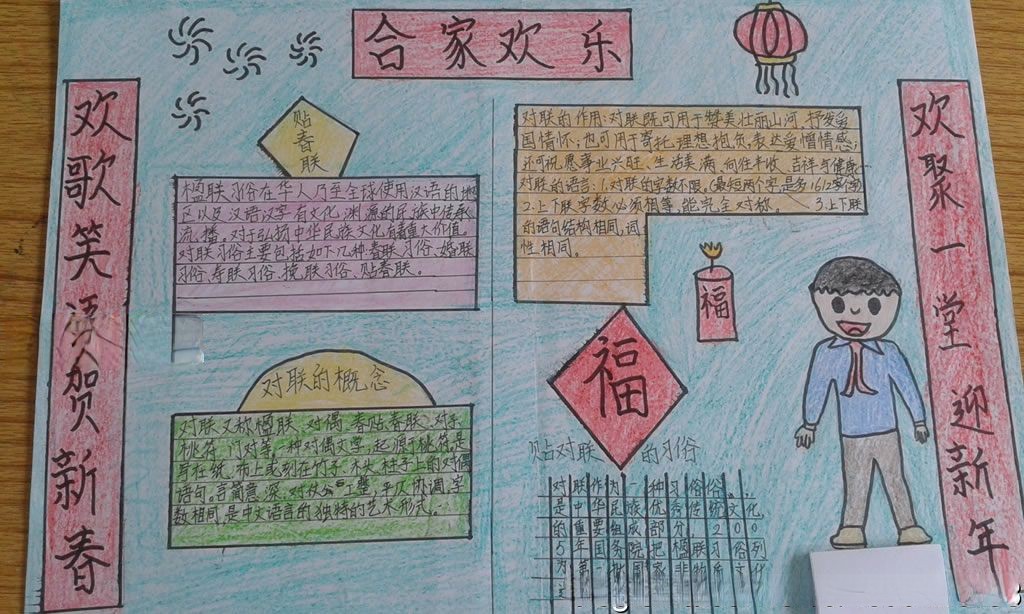 合家欢乐
欢歌笑语贺新春
欢聚一堂迎新年
贴春联
楹联习俗在华人乃至全球使用汉语的地
区以及汉语汉字有文化渊源的民族中传承
流播。对于弘扬中华民族文化有着重大价值。
对联习俗主要包括如下几种春联习俗、婚联
习俗、寿联习俗、挽联习俗、贴春联。
对联的作用:对联既可用于赞美壮丽山河、抒发爱
国情怀;也可用于寄托理想抱负,表达爱憎情感;
还可祝愿事业兴旺、生活美满、向往丰收、吉祥与健康
对联的语言:1.对联的字数不限,(最短两个字,最多1612字(等)
2.上下联字数必须相等,能完全对称。 3.上下联
的语句结构相同,词
性相同。
福
福
对联的概念
对联又称楹联、对偶、春贴、春联、对子、
桃符、门对等,一种对偶文学,起源于桃符,是
写在纸、布上或刻在竹子、木头、柱子上的对偶
语句。言简意深,对仗工整,平仄协调,字
数相同,是中文语言的独特的艺术形式。
贴对联的习俗
对联作为一种习俗俗,
是中华民族优秀传统文化
的重要组成部分,200
5年国务院把楹联习俗列
为第一批国家非物质文化